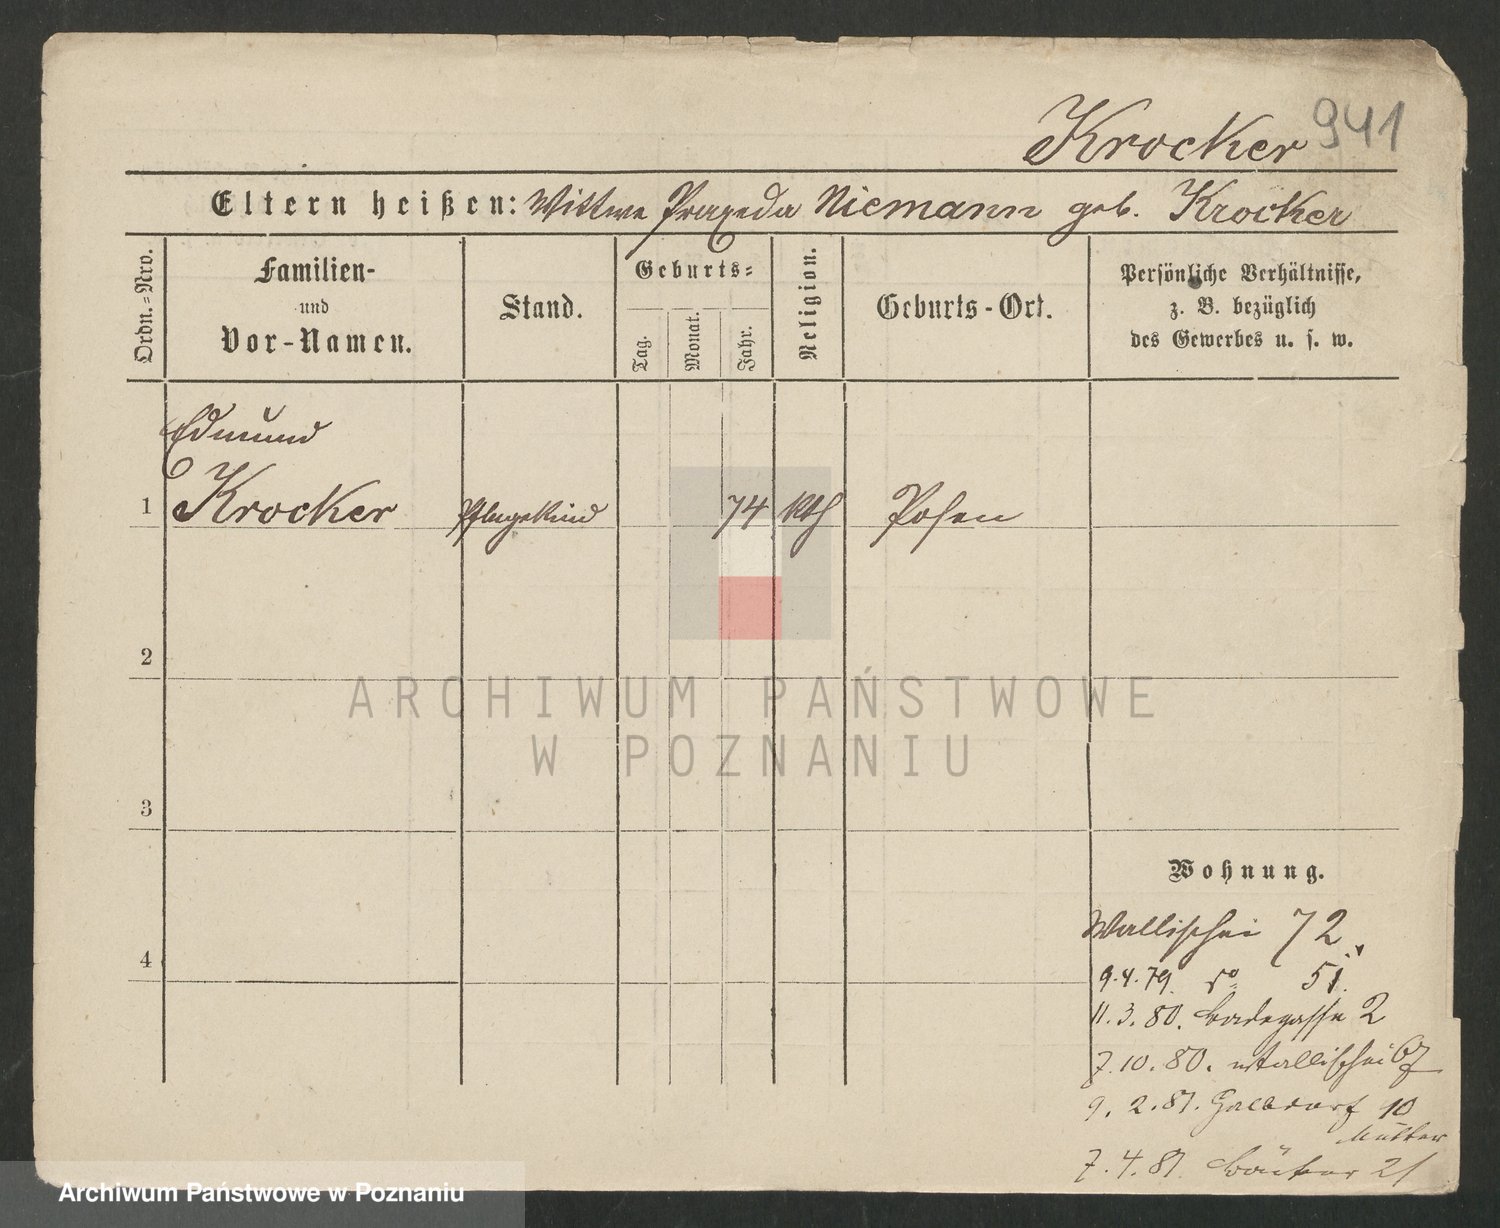 Krocker 941
Eltern heißen: Wittwe Praxeda Niemann geb. Krocker
Ordn.-Nro.
Familien-
und
Vor-Namen.
Stand.
Geburts-
Tag.
Monat.
Jahr.
Religion.
Geburts-Ort.
Persönliche Verhältnisse,
z. B. bezüglich
des Gewerbes u. s. w.
Edmund
1 Krocker Pflegekind 74 kth Posen
2
ARCHIWUM PAŃSTWOWE
W POZNANIU
3
Wohnung.
Wallischei 72
4
9.4.79. do 51.
11.3.80. Badegasse 2
7.10.80. Wallischei 67
9.2.81. Halbdorf 10
Mutter
7.4.81. 21
Archiwum Państwowe w Poznaniu